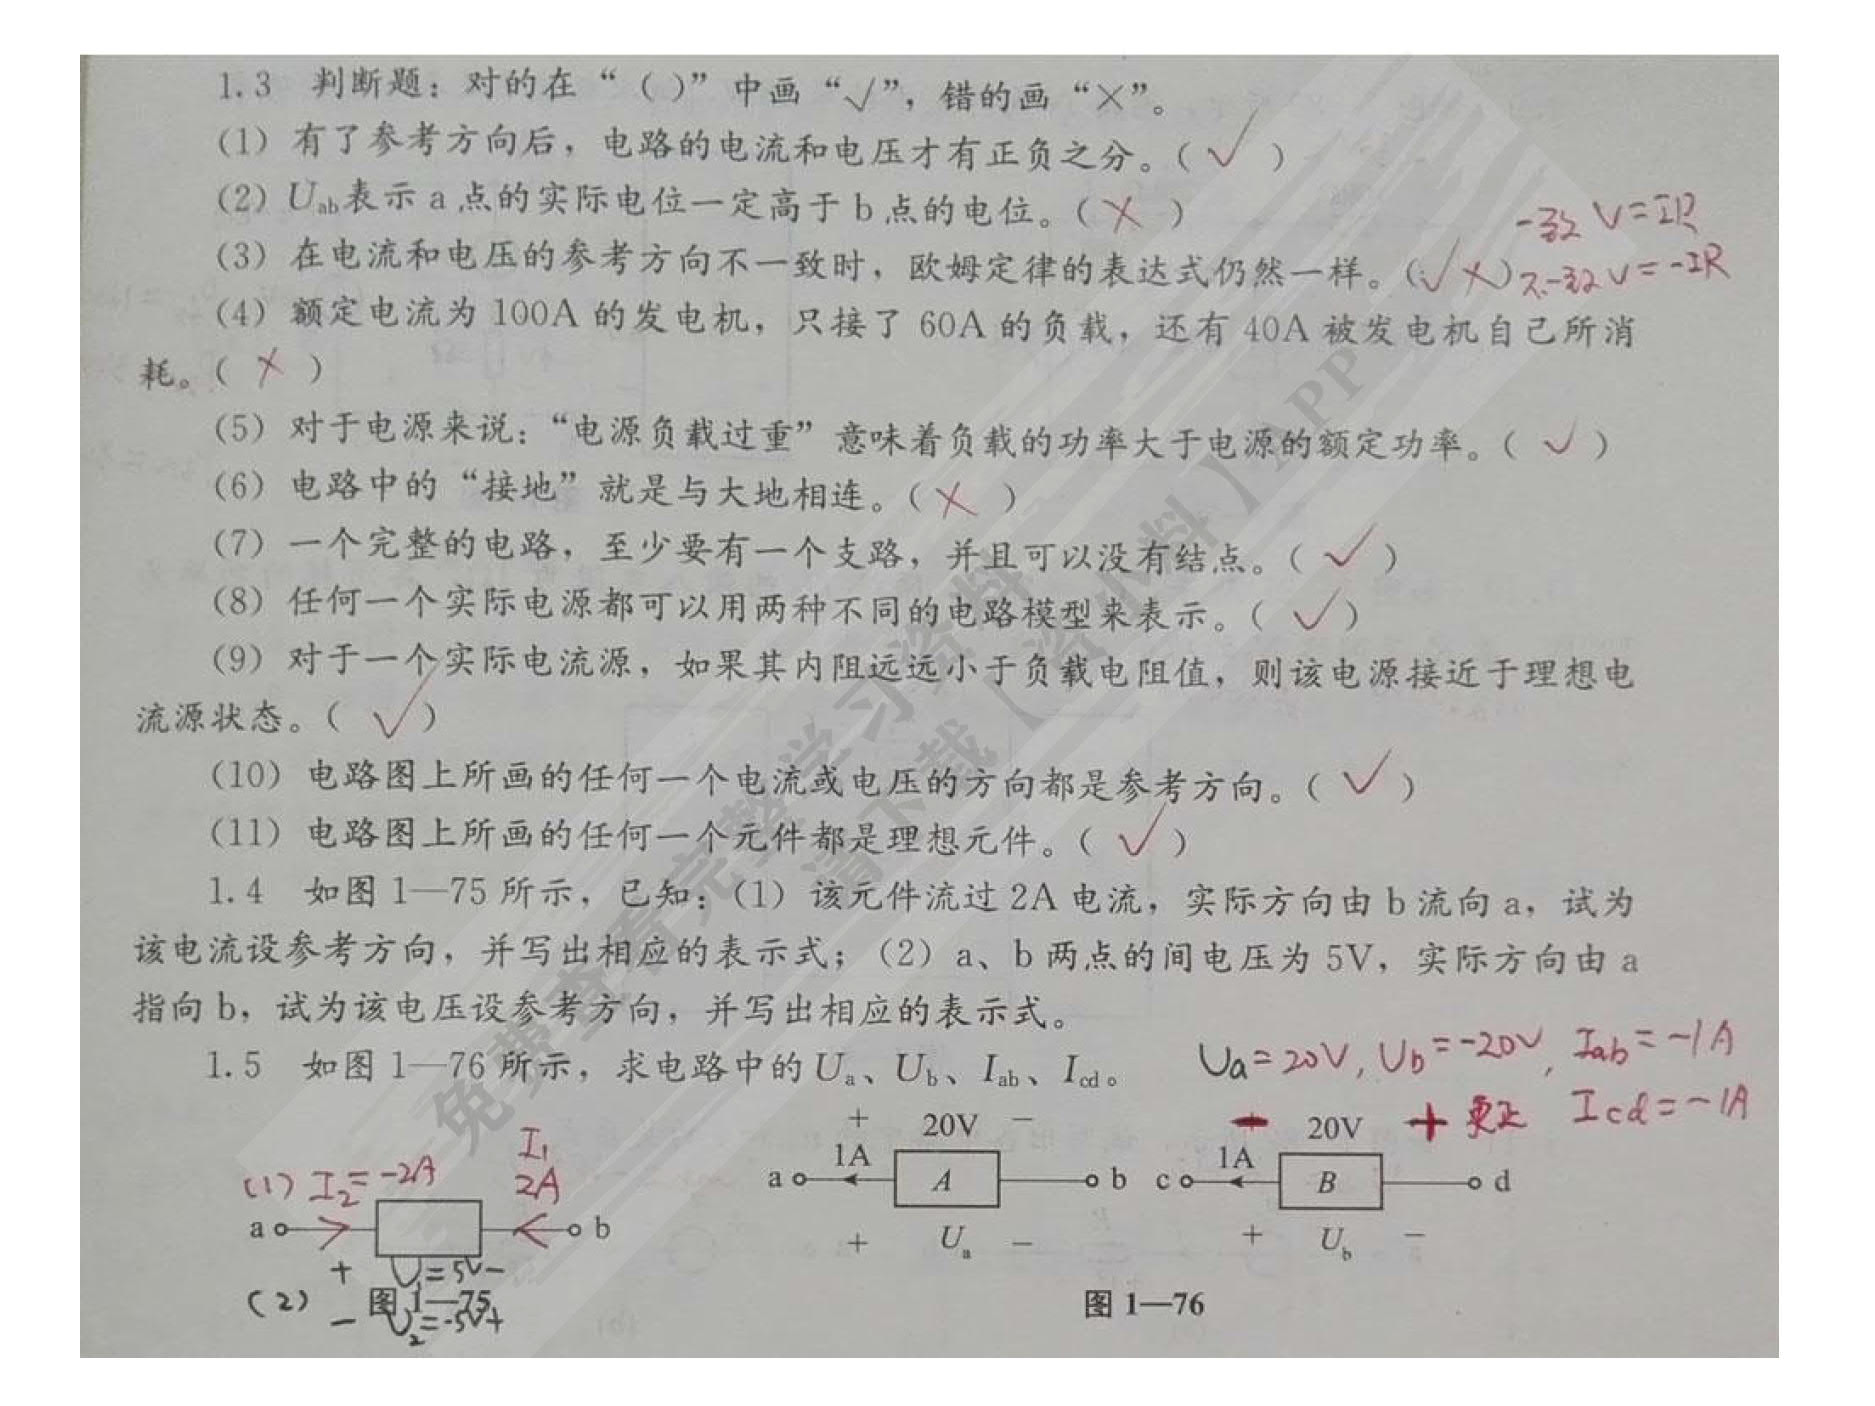 1.3 判断题：对的在“（ ）”中画“√”，错的画“×”。
(1) 有了参考方向后，电路的电流和电压才有正负之分。( √ )
(2) Uab表示 a 点的实际电位一定高于 b 点的电位。( × )
一致 V=IR
(3) 在电流和电压的参考方向不一致时，欧姆定律的表达式仍然一样。(√ ×) 不一致 V=-IR
(4) 额定电流为 100A 的发电机，只接了 60A 的负载，还有 40A 被发电机自己所消
耗。( × )
(5) 对于电源来说：“电源负载过重”意味着负载的功率大于电源的额定功率。( √ )
(6) 电路中的“接地”就是与大地相连。( × )
(7) 一个完整的电路，至少要有一个支路，并且可以没有结点。( √ )
(8) 任何一个实际电源都可以用两种不同的电路模型来表示。( √ )
(9) 对于一个实际电流源，如果其内阻远远小于负载电阻值，则该电源接近于理想电
流源状态。( √ )
(10) 电路图上所画的任何一个电流或电压的方向都是参考方向。( √ )
(11) 电路图上所画的任何一个元件都是理想元件。( √ )
1.4 如图 1—75 所示，已知：(1) 该元件流过 2A 电流，实际方向由 b 流向 a，试为
该电流设参考方向，并写出相应的表示式；(2) a、b 两点的间电压为 5V，实际方向由 a
指向 b，试为该电压设参考方向，并写出相应的表示式。
1.5 如图 1—76 所示，求电路中的 Ua、Ub、Iab、Icd。
Ua=20V, Ub=-20V, Iab=-1A
Icd=-1A
+ 20V − 20V + 更正
(1) I2=-2A I1 2A
1A A 1A B
a b a b c d
+ U1=5V −
+ Ua − + Ub −
(2) 图 1—75
− U2=-5V +
图 1—76
免费查看完整学习资料
请下载【 洛小料 】APP